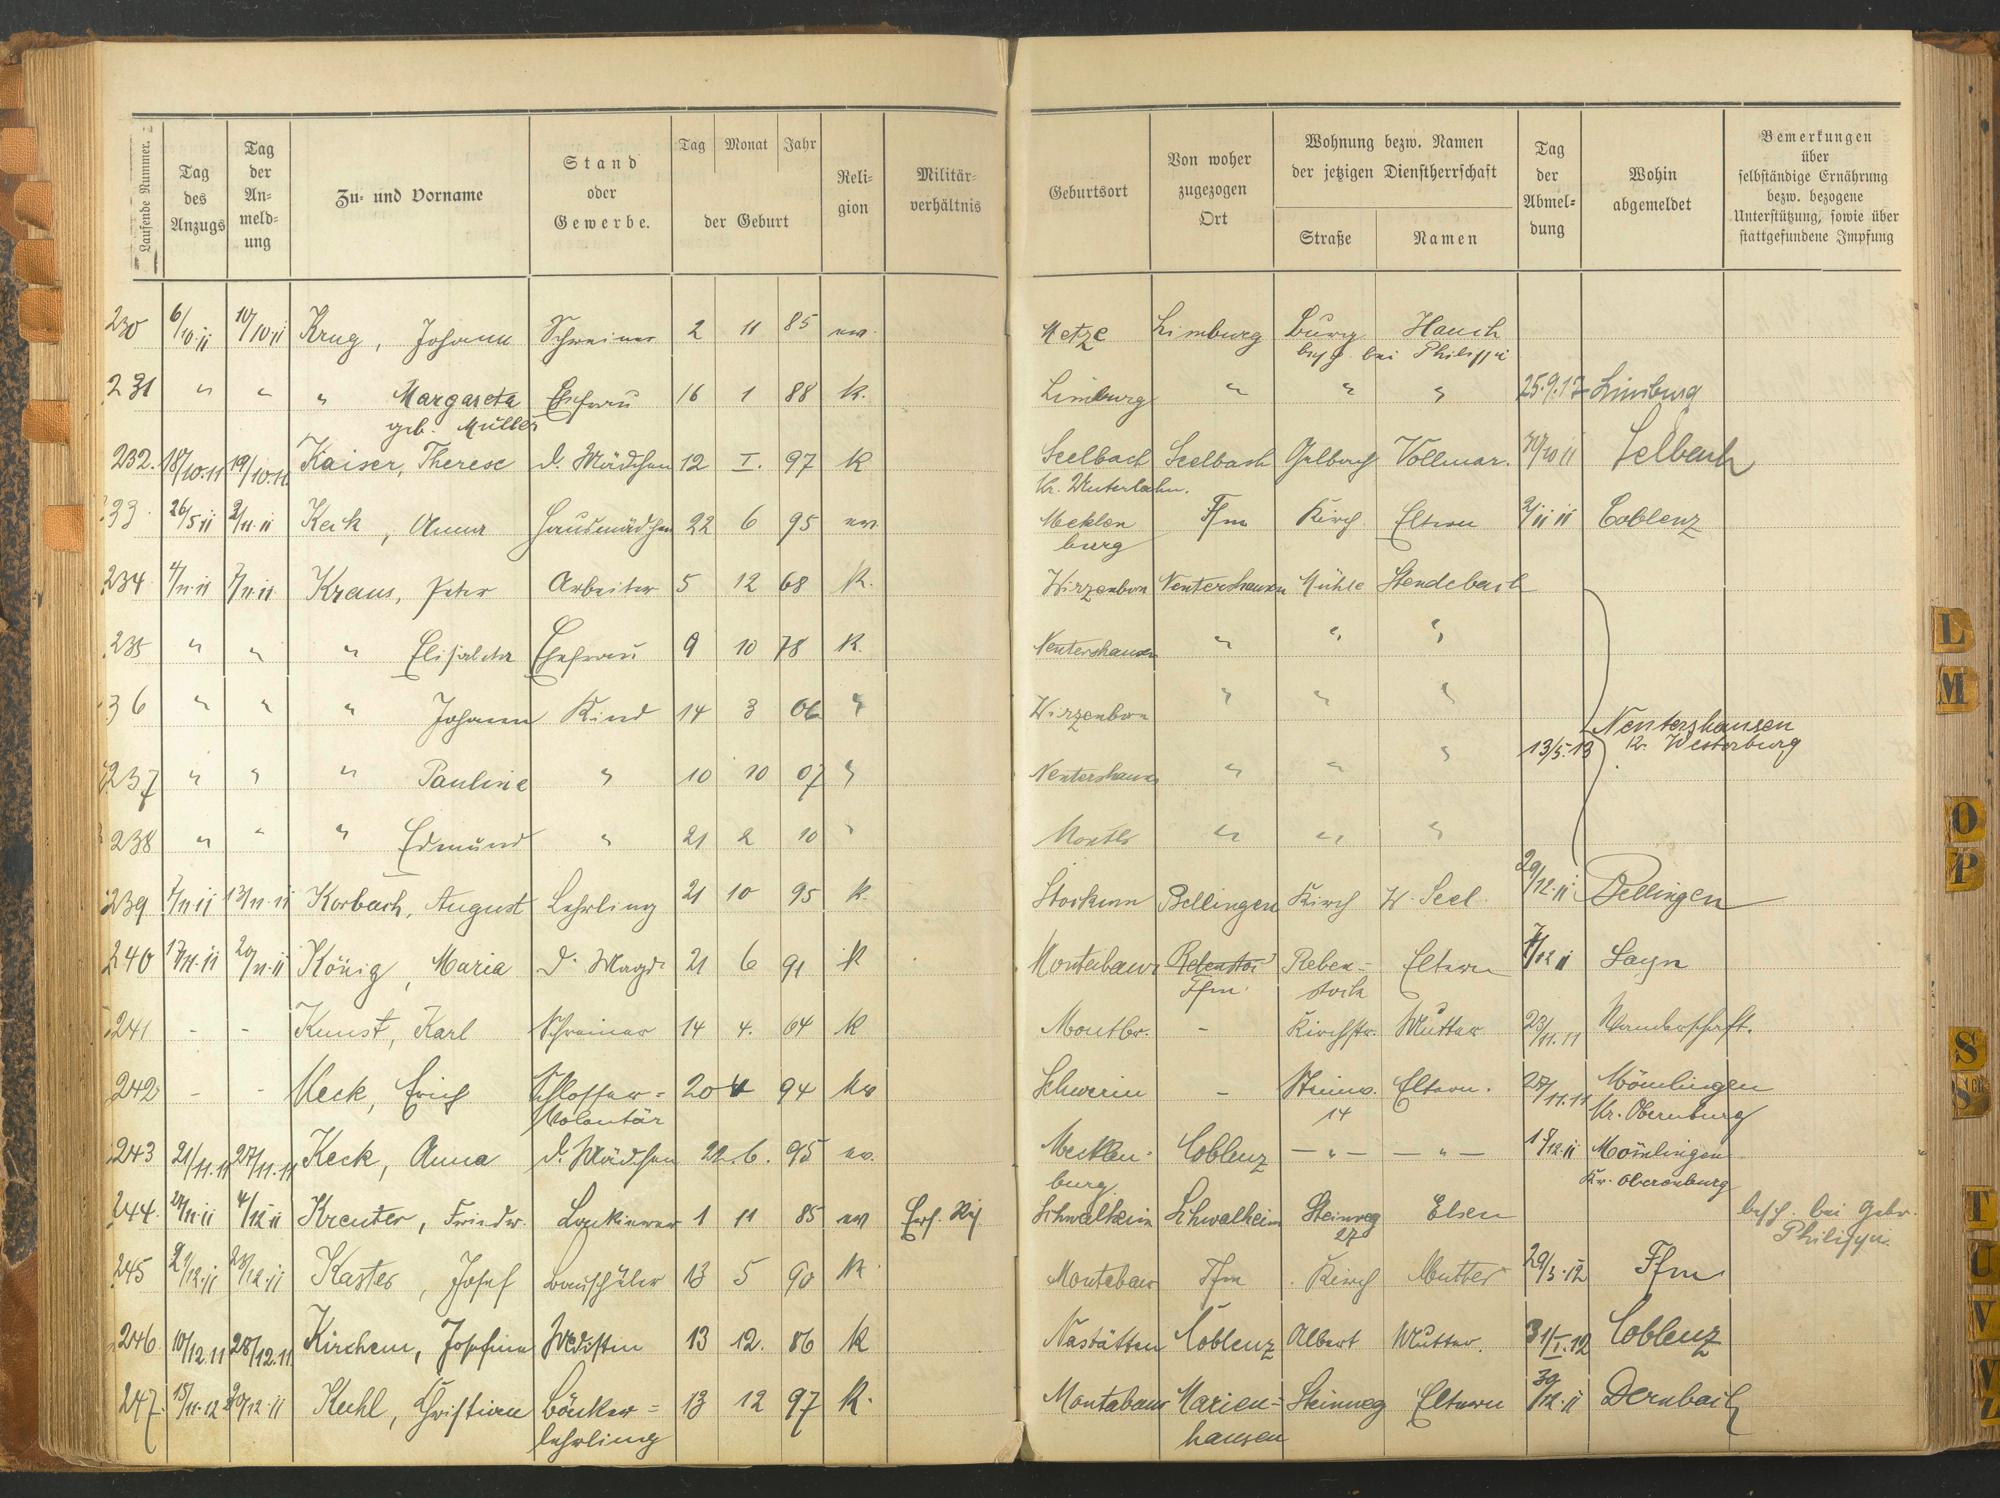 Laufende Nummer.
Tag des Anzugs
Tag der An- meld- ung
Zu- und Vorname
Stand oder Gewerbe.
Tag Monat Jahr
der Geburt
Reli- gion
Militär- verhältnis
Geburtsort
Von woher zugezogen Ort
Wohnung bezw. Namen der jetzigen Dienstherrschaft
Straße Namen
Tag der Abmel- dung
Wohin abgemeldet
Bemerkungen über selbständige Ernährung bezw. bezogene Unterstützung, sowie über stattgefundene Impfung
230 6/10 11 10/10 11 Krug, Johann Schreiner 2 11 85 ev. Metze Limburg Burg Hauch
bei Philippi
231 " " " Margareta Ehefrau 16 1 88 k. Limburg " " " 25.9.12 Limburg
geb. Müller
232. 18/10.11 19/10.11 Kaiser, Therese d. Mädchen 12 I. 97 k Seelbach Seelbach Gelbach Vollmar. Selbach
Kr. Unterlahn.
33 26/5 11 2/11.11 Keck, Anna Hausmädchen 22 6 95 ev. Mecklen Ffm Kirch Eltern 2/11 11 Coblenz
burg
234 4/11.11 7/11.11 Kraus, Peter Arbeiter 5 12 68 k. Wirzenborn Nentershausen Mühle Stendebach
235 " " " Elisabeta Ehefrau 9 10 78 k. Nentershausen " " "
36 " " " Johann Kind 14 3 06 " Wirzenborn " " " Nentershausen
13/5.13 Kr. Westerburg
237 " " " Pauline " 10 10 07 " Nentershausen " " "
238 " " " Edmund " 21 2 10 " " " "
239 7/11 11 13/11.11 Korbach, August Lehrling 21 10 95 k. Stockum Bellingen Kirch W. Seel. 29/12.11 Bellingen
240 17/11.11 20/11.11 König, Maria d. Magd 21 6 91 k Montabaur Reben- Eltern 7/12 11 Sayn
Ffm. stock
241 - - Kunst, Karl Schreiner 14 4. 64 k Montbr. - Kirchstr. Mutter 23/11.11 Wanderschaft.
242 - - Keck, Erich Schlosser- 20 4 94 ev Schwerin - Steinw. Eltern. 28/11.11 Mömlingen
Volontär 14 Kr. Obernburg
243 21/11.11 27/11.11 Keck, Anna d. Mädchen 22. 6. 95 ev. Mecklen- Coblenz — " — — " — 12.11 Mömlingen
burg. Kr. Oberenburg
244. 27/11.11 4/12 11 Kreuter, Friedr. Lackierer 1 11 85 ev Schwalheim Schwalheim Steinweg Elsen besch. bei Gebr.
27 Philippi.
245 2/12.11 23/12.11 Kaster, Josef Bauschüler 13 5 90 k. Montabaur Ffm Kirch Mutter 29/3.12 Ffm
246 10/12.11 28/12.11 Kirchem, Josefine Modistin 13 12. 86 k Nastätten Koblenz Albert Mutter. 31/I.12 Coblenz
247. 20/12.11 Kuhl, Christian Bäcker- 13 12 97 k. Montabaur Marien- Steinweg Eltern 30/12.11 Dernbach
lehrling hausen
L
M
O
P
S
T
U
V